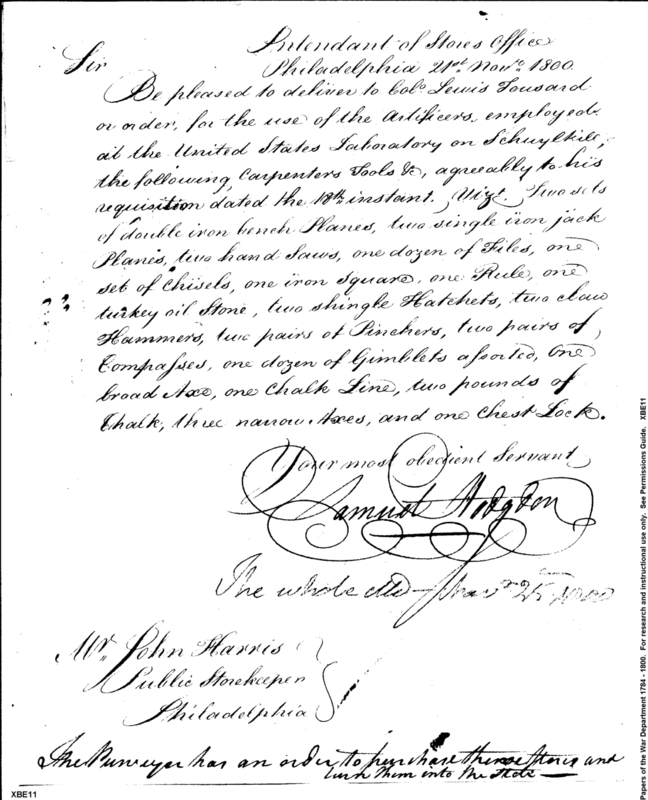 Intendant of Stores Office
Philadelphia 21st. Novr. 1800
Sir
Be pleased to deliver to Colo. Lewis Tousard
or order, for the use of the Artificers, employed
at the United States Laboratory on Schuylkill,
the following, Carpenters Tools &c, agreeably to his
requisition dated the 18th. instant. Vizt. Two sets
of double iron bench Planes, two single iron jack
Planes, two hand Saws, one dozen of Files, one
set of Chisels, one iron Square, one Rule, one
turkey oil Stone, two shingle Hatchets, two claw
Hammers, two pairs of Pinchers, two pairs of
Compasses, one dozen of Gimblets assorted, one
broad Axe, one Chalk Line, two pounds of
Chalk, three narrow Axes, and one Chest Lock.
Your most obedient Servant
Samuel Hodgdon
The whole 25 1800
Mr. John Harris
Public Storekeeper
Philadelphia
The Purveyor has an order to purchase these stores and
turn them into the State
XBE11
Papers of the War Department 1784 - 1800. For research and instructional use only. See Permissions Guide. XBE11